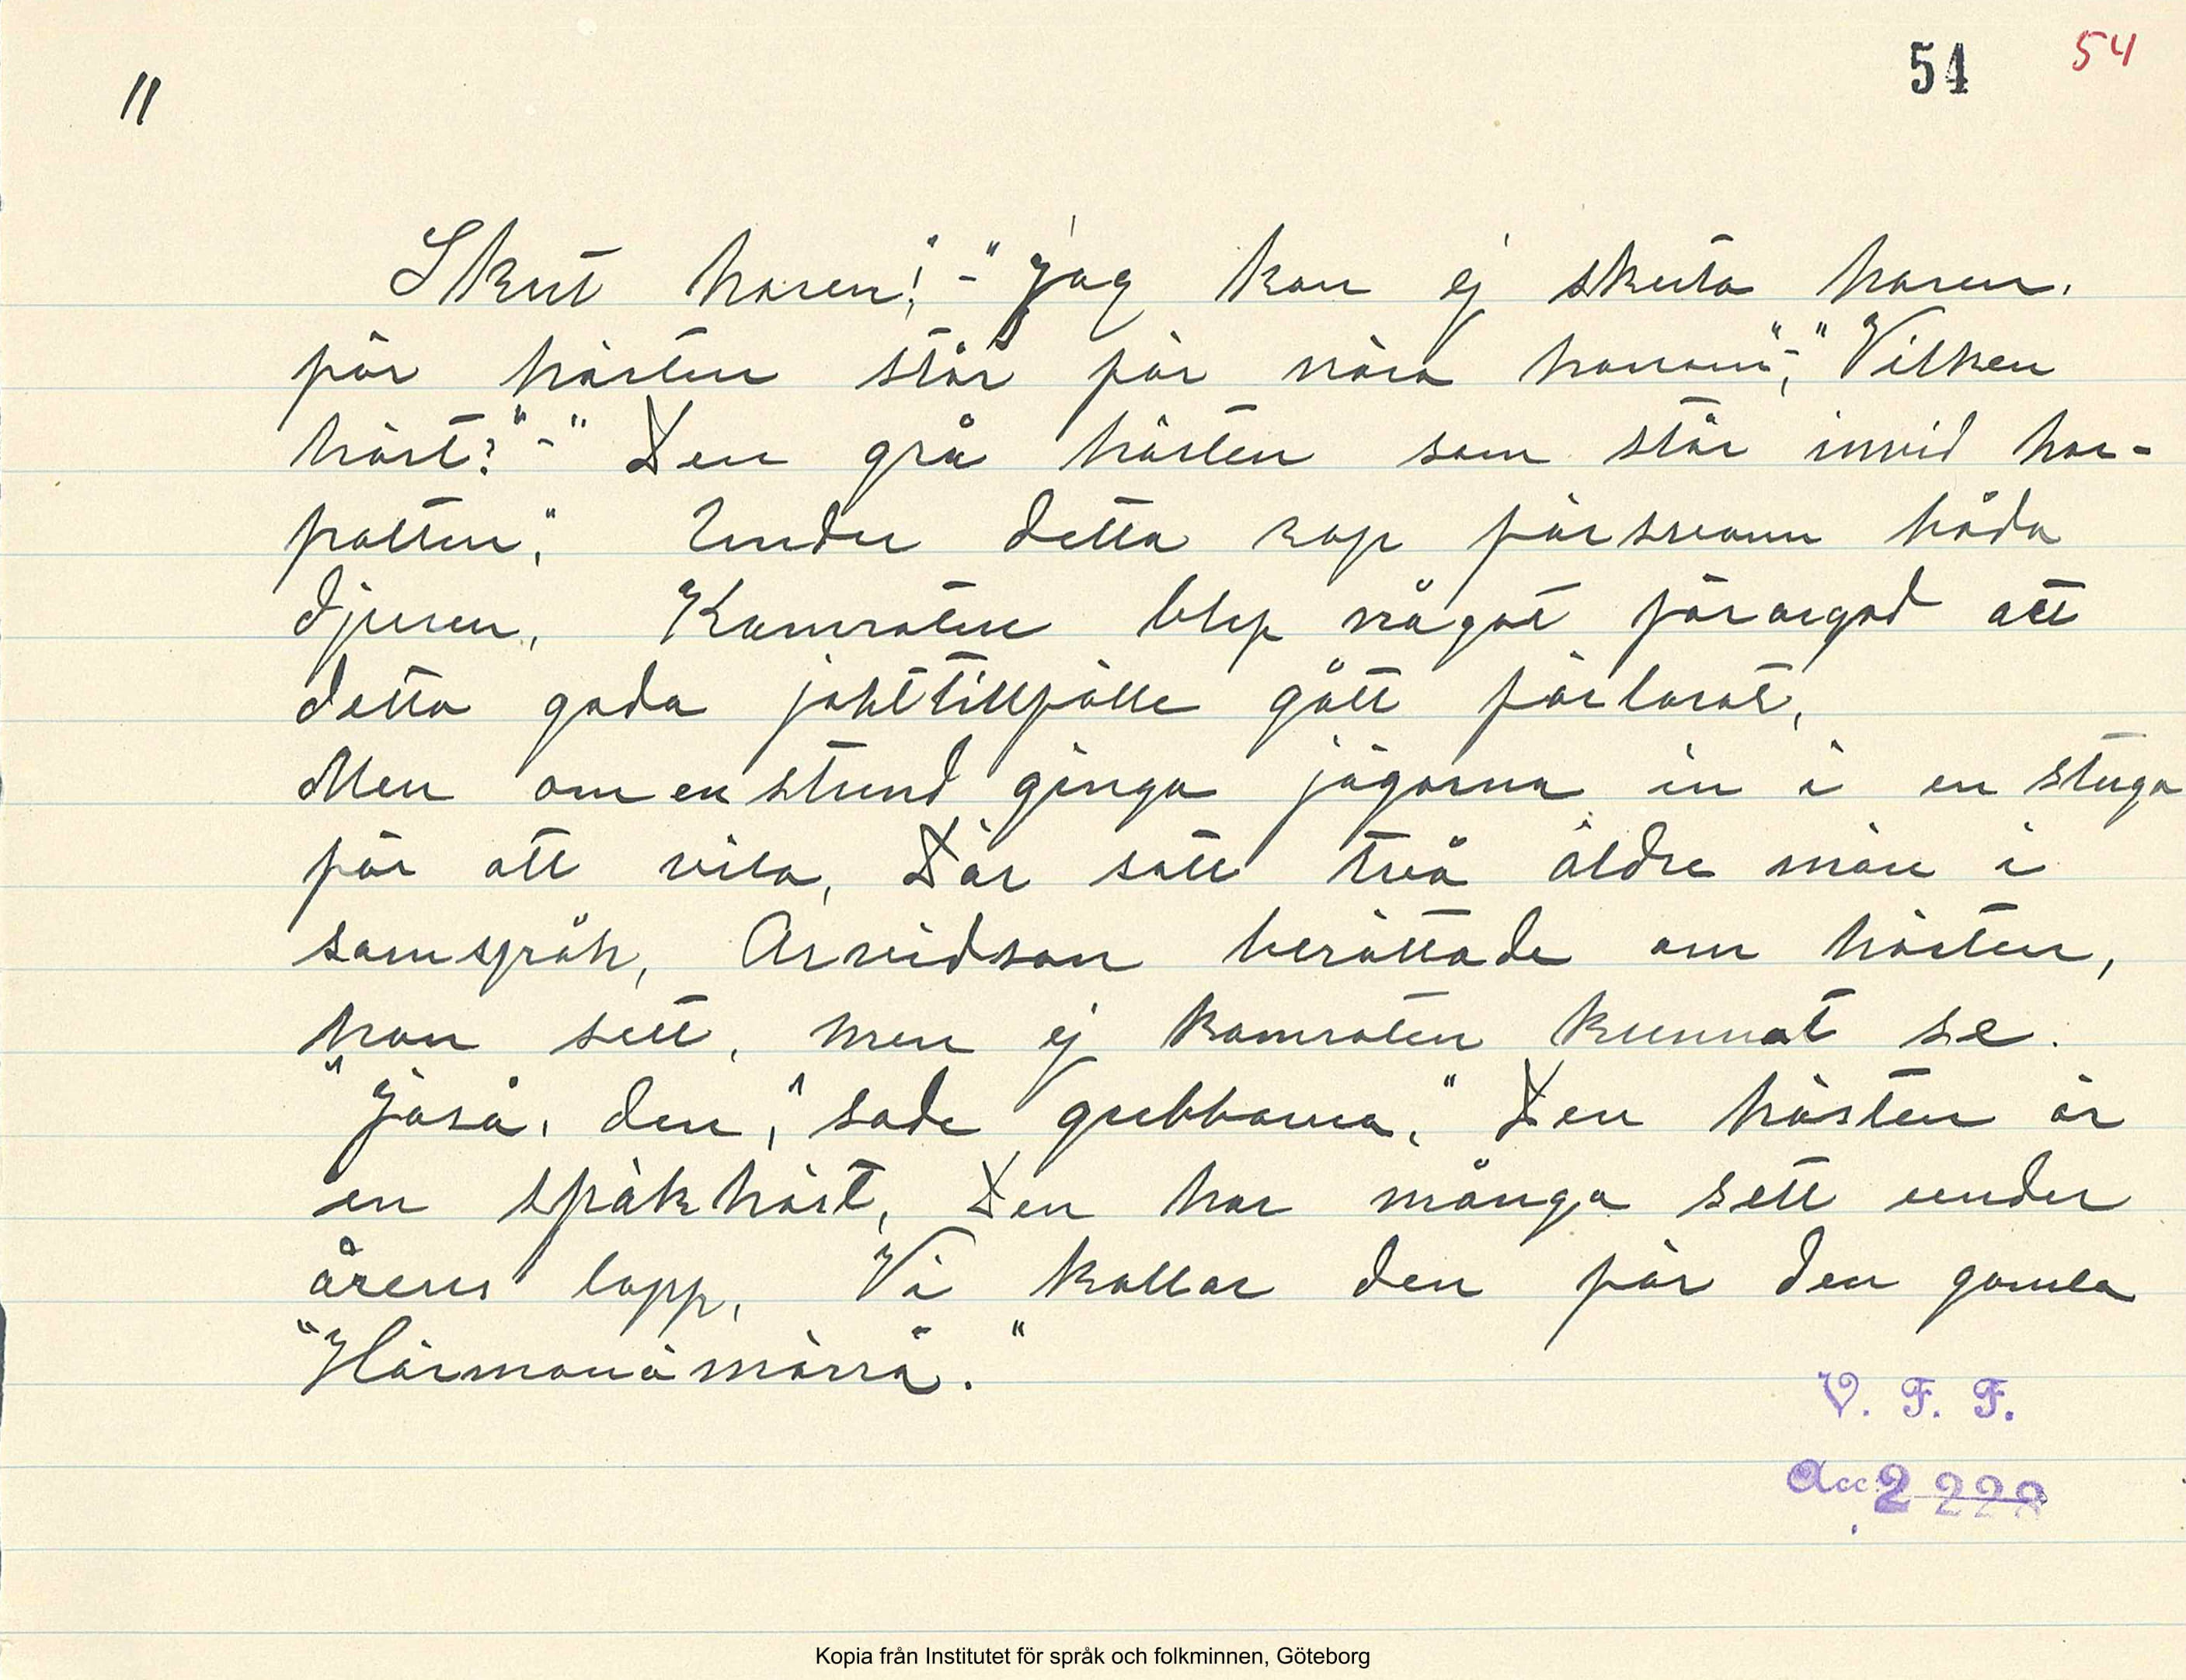 54 54
11
Skut haren!" - "Jag kan ej skuta haren.
för hästen står för nära honom", - "Vilken
häst?" - "Den grå hästen som står invid har-
patten." Under detta rop försvann båda
djuren. Kamraten blef något förargad att
detta goda jakttillfälle gått förlorat.
Men om en stund gingo jägarna in i en stuga
för att vila. Där satt två äldre män i
samspråk. Arvidson berättade om hästen,
han sett, men ej kamraten kunnat se.
"Jaså, den," sade gubbarna. "Den hästen är
en spökhäst. Den har många sett under
årens lopp. Vi kallar den för den gamla
"Härmanämärrä."
V. F. F.
Acc 2228
Kopia från Institutet för språk och folkminnen, Göteborg